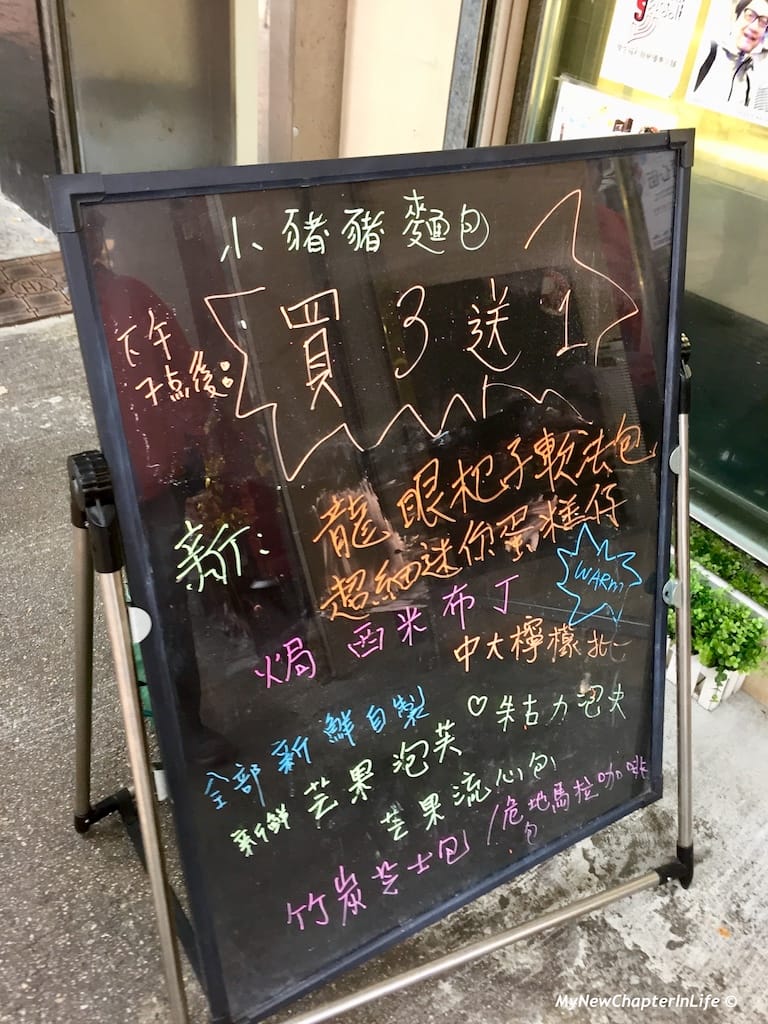 小豬豬麵包
下午
7点後:
買3送1
新:
龍眼杞子軟法包
超細迷你蛋糕仔
WARM
焗西米布丁
中大檸檬批
全部新鮮自製
♡朱古力泡夫
新鮮芒果泡芙
芒果流心包
竹炭芝士包/危地馬拉咖啡
包
MyNewChapterInLife ©